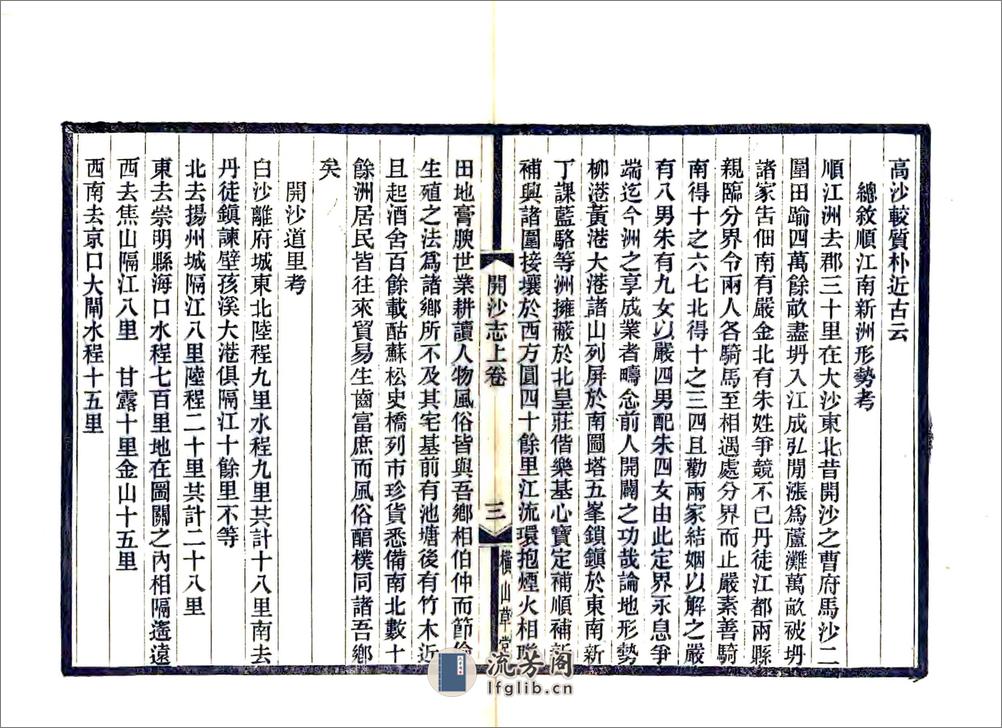 高沙較質朴近古云
總敘順江南新洲形勢考
順江洲去郡三十里在大沙東北昔開沙之曹府馬沙二
圍田踰四萬餘畝盡坍入江成弘閒漲爲蘆灘萬畝被坍
諸家吿佃南有嚴金北有朱姓爭競不已丹徒江都兩縣
親臨分界令兩人各騎馬至相遇處分界而止嚴素善騎
南得十之六七北得十之三四且勸兩家結姻以解之嚴
有八男朱有九女以嚴四男配朱四女由此定界永息爭
端迄今洲之享成業者疇念前人開闢之功哉論地形勢
柳港黃港大港諸山列屏於南圌塔五峯鎖鎮於東南新
丁課藍駱等洲擁蔽於北皇莊偕樂基心寶定補順補新
補興諸圍接壤於西方圓四十餘里江流環抱煙火相聯
田地膏腴世業耕讀人物風俗皆與吾鄉相伯仲而節儉
生殖之法爲諸鄉所不及其宅基前有池塘後有竹木近
且起酒舍百餘載酤蘇松史橋列市珍貨悉備南北數十
餘洲居民皆往來貿易生齒富庶而風俗醕樸同諸吾鄉
矣
開沙道里考
白沙離府城東北陸程九里水程九里共計十八里南去
丹徒鎮諫壁孩溪大港俱隔江十餘里不等
北去揚州城隔江八里陸程二十里共計二十八里
東去崇明縣海口水程七百里地在圖關之內相隔遙遠
西去焦山隔江八里　甘露十里金山十五里
西南去京口大閘水程十五里
開沙志上卷
三
橫山草堂
流芳阁
lfglib.cn